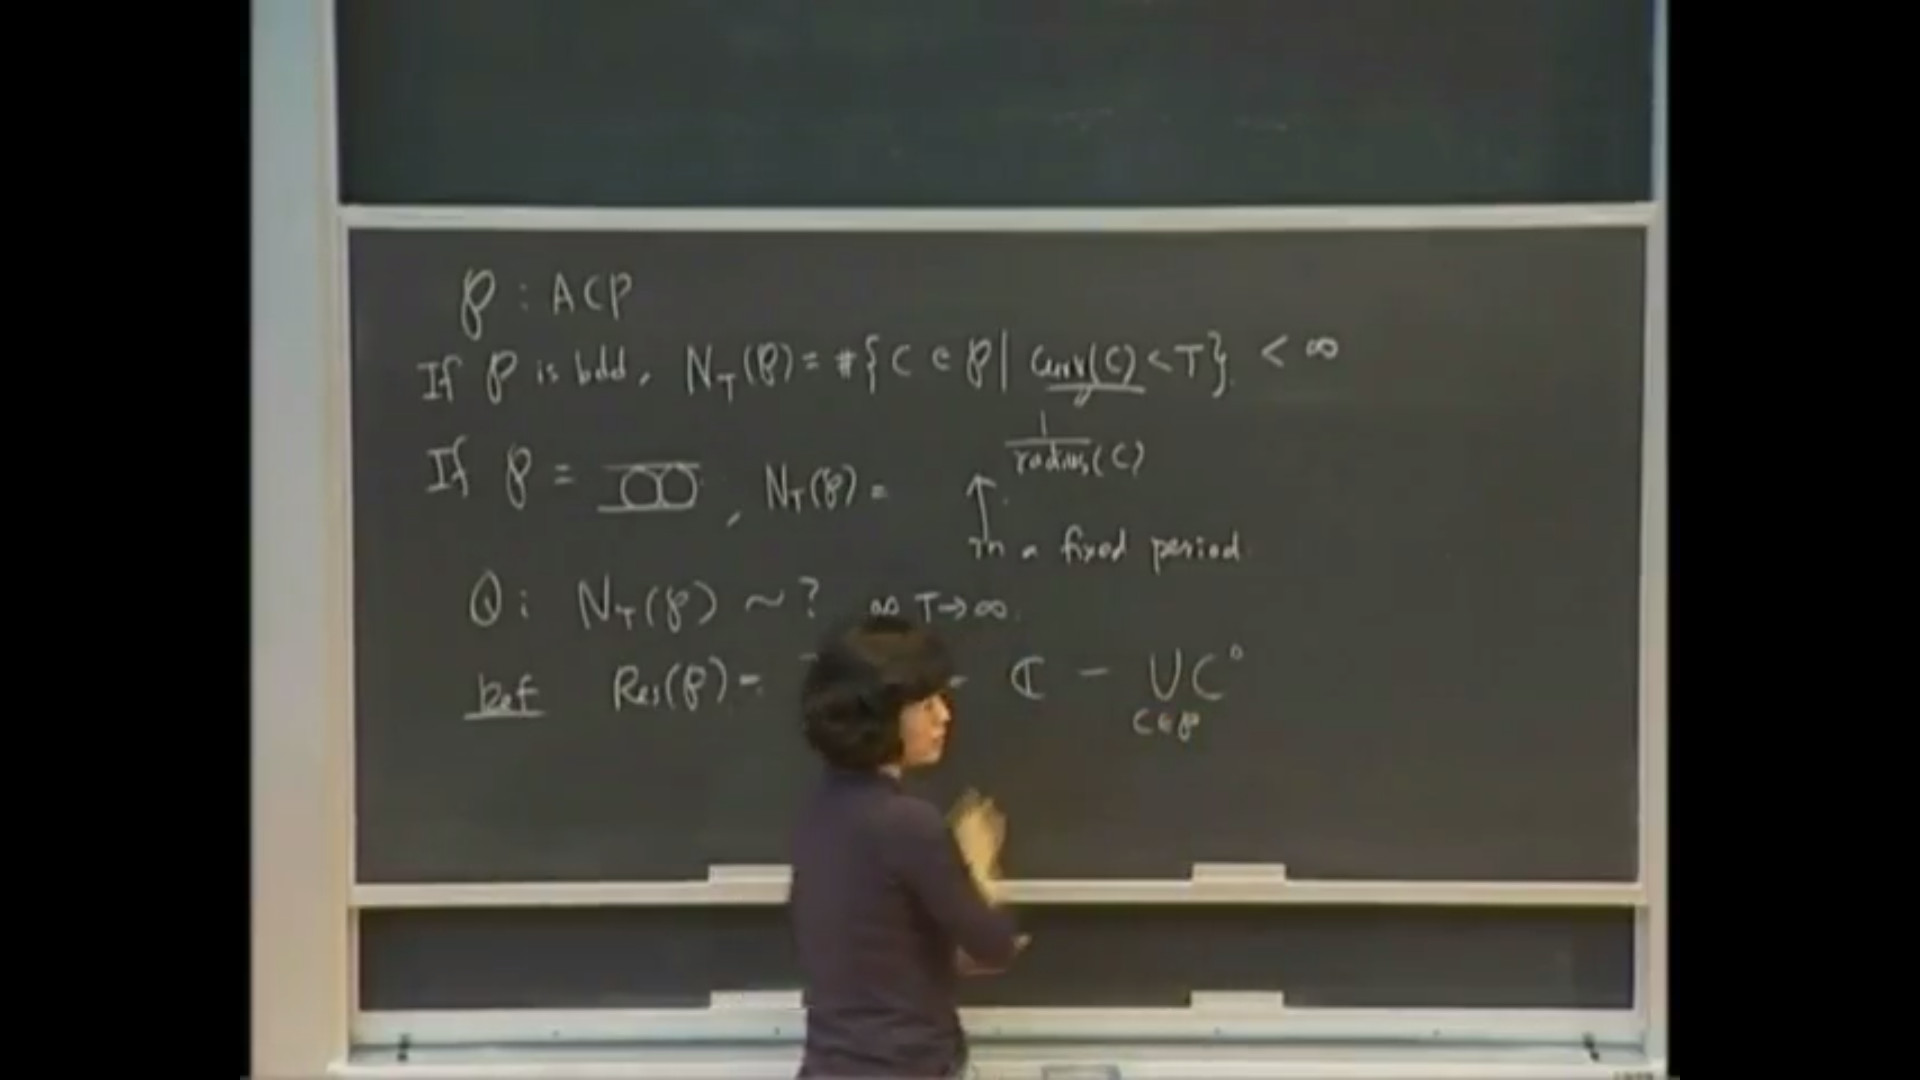 𝒫 : ACP
If 𝒫 is bdd, N_T(𝒫) = #{C ∈ 𝒫 | Curv(C) < T} < ∞
1/radius(C)
If 𝒫 = , N_T(𝒫) =
in a fixed period
Q: N_T(𝒫) ~ ? as T→∞.
Def Res(𝒫) = = ℂ − ∪ C°
C∈𝒫